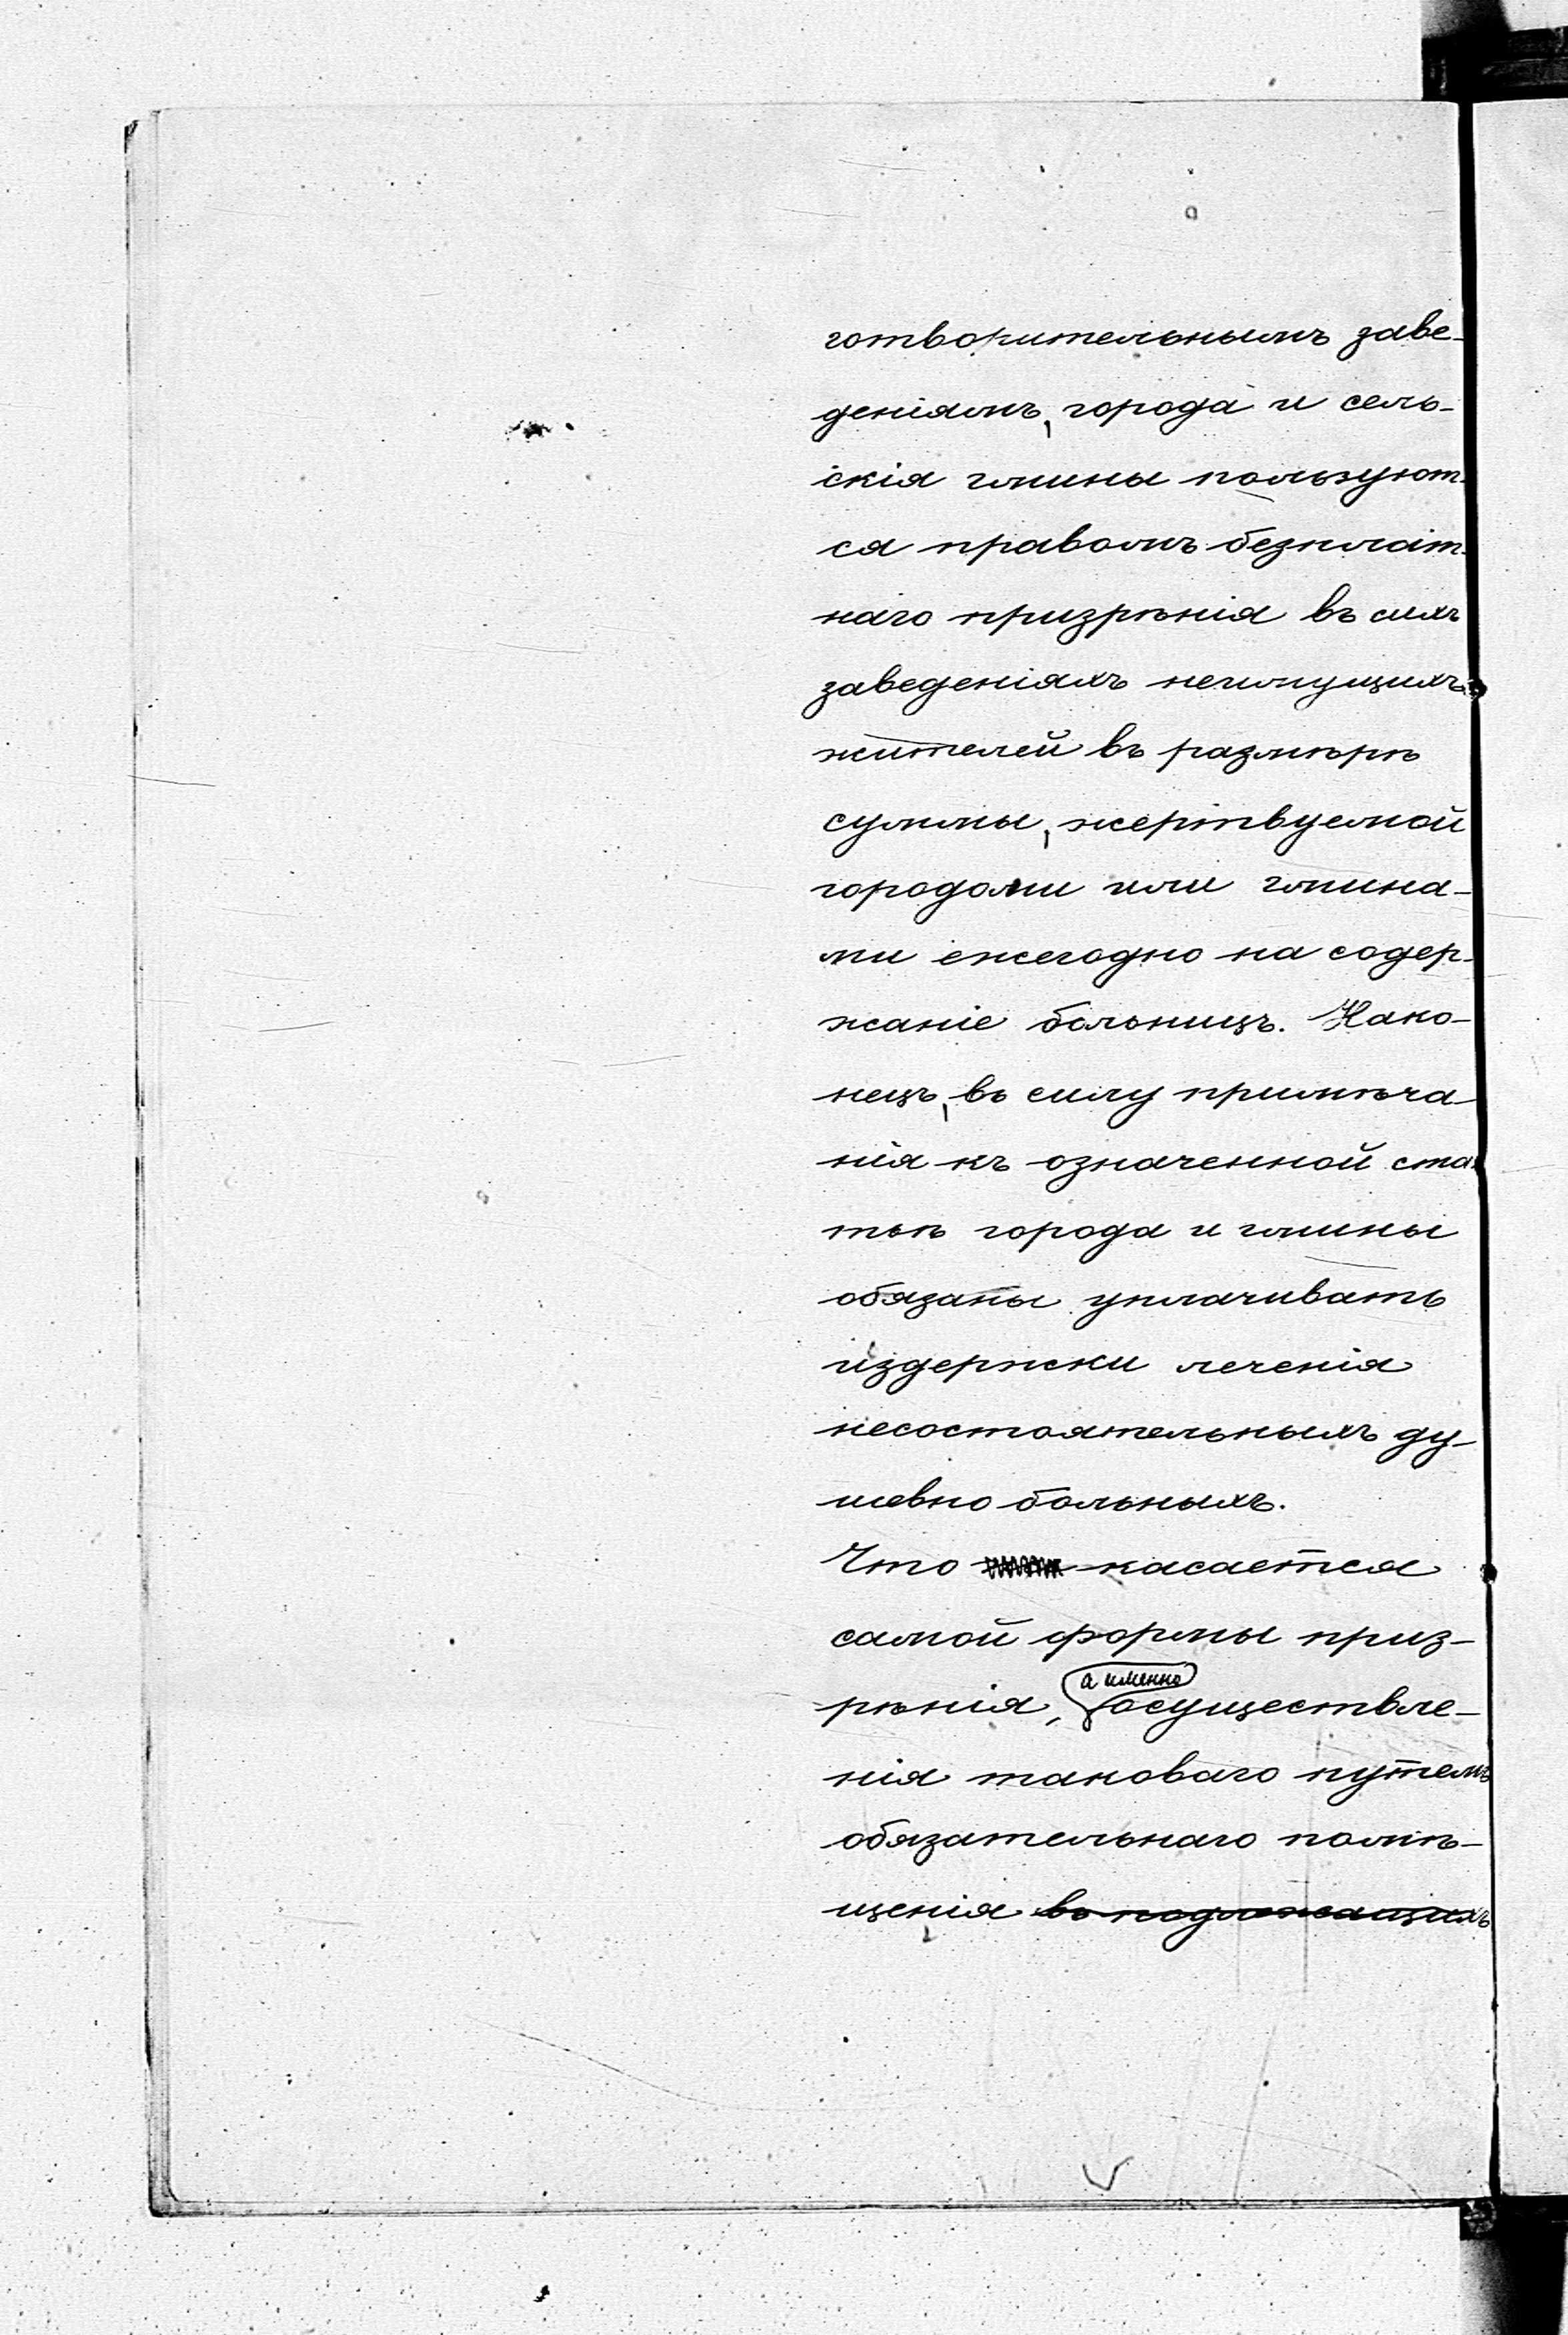 готворительнымъ заве-
деніямъ, города и сель-
скія гмины пользуют-
ся правомъ безплат-
наго призрѣнія въ сихъ
заведеніяхъ неимущихъ
жителей въ размѣрѣ
суммы, жертвуемой
городами или гмина-
ми ежегодно на содер-
жаніе больницъ. Нако-
нецъ, въ силу примѣча-
нія къ означенной ста-
тьѣ города и гмины
обязаны уплачивать
издержки леченія
несостоятельныхъ ду-
шевно больныхъ.
Что касается
самой формы приз-
а именно
рѣнія, осуществле-
нія таковаго путемъ
обязательнаго помѣ-
щенія въ подлежащихъ